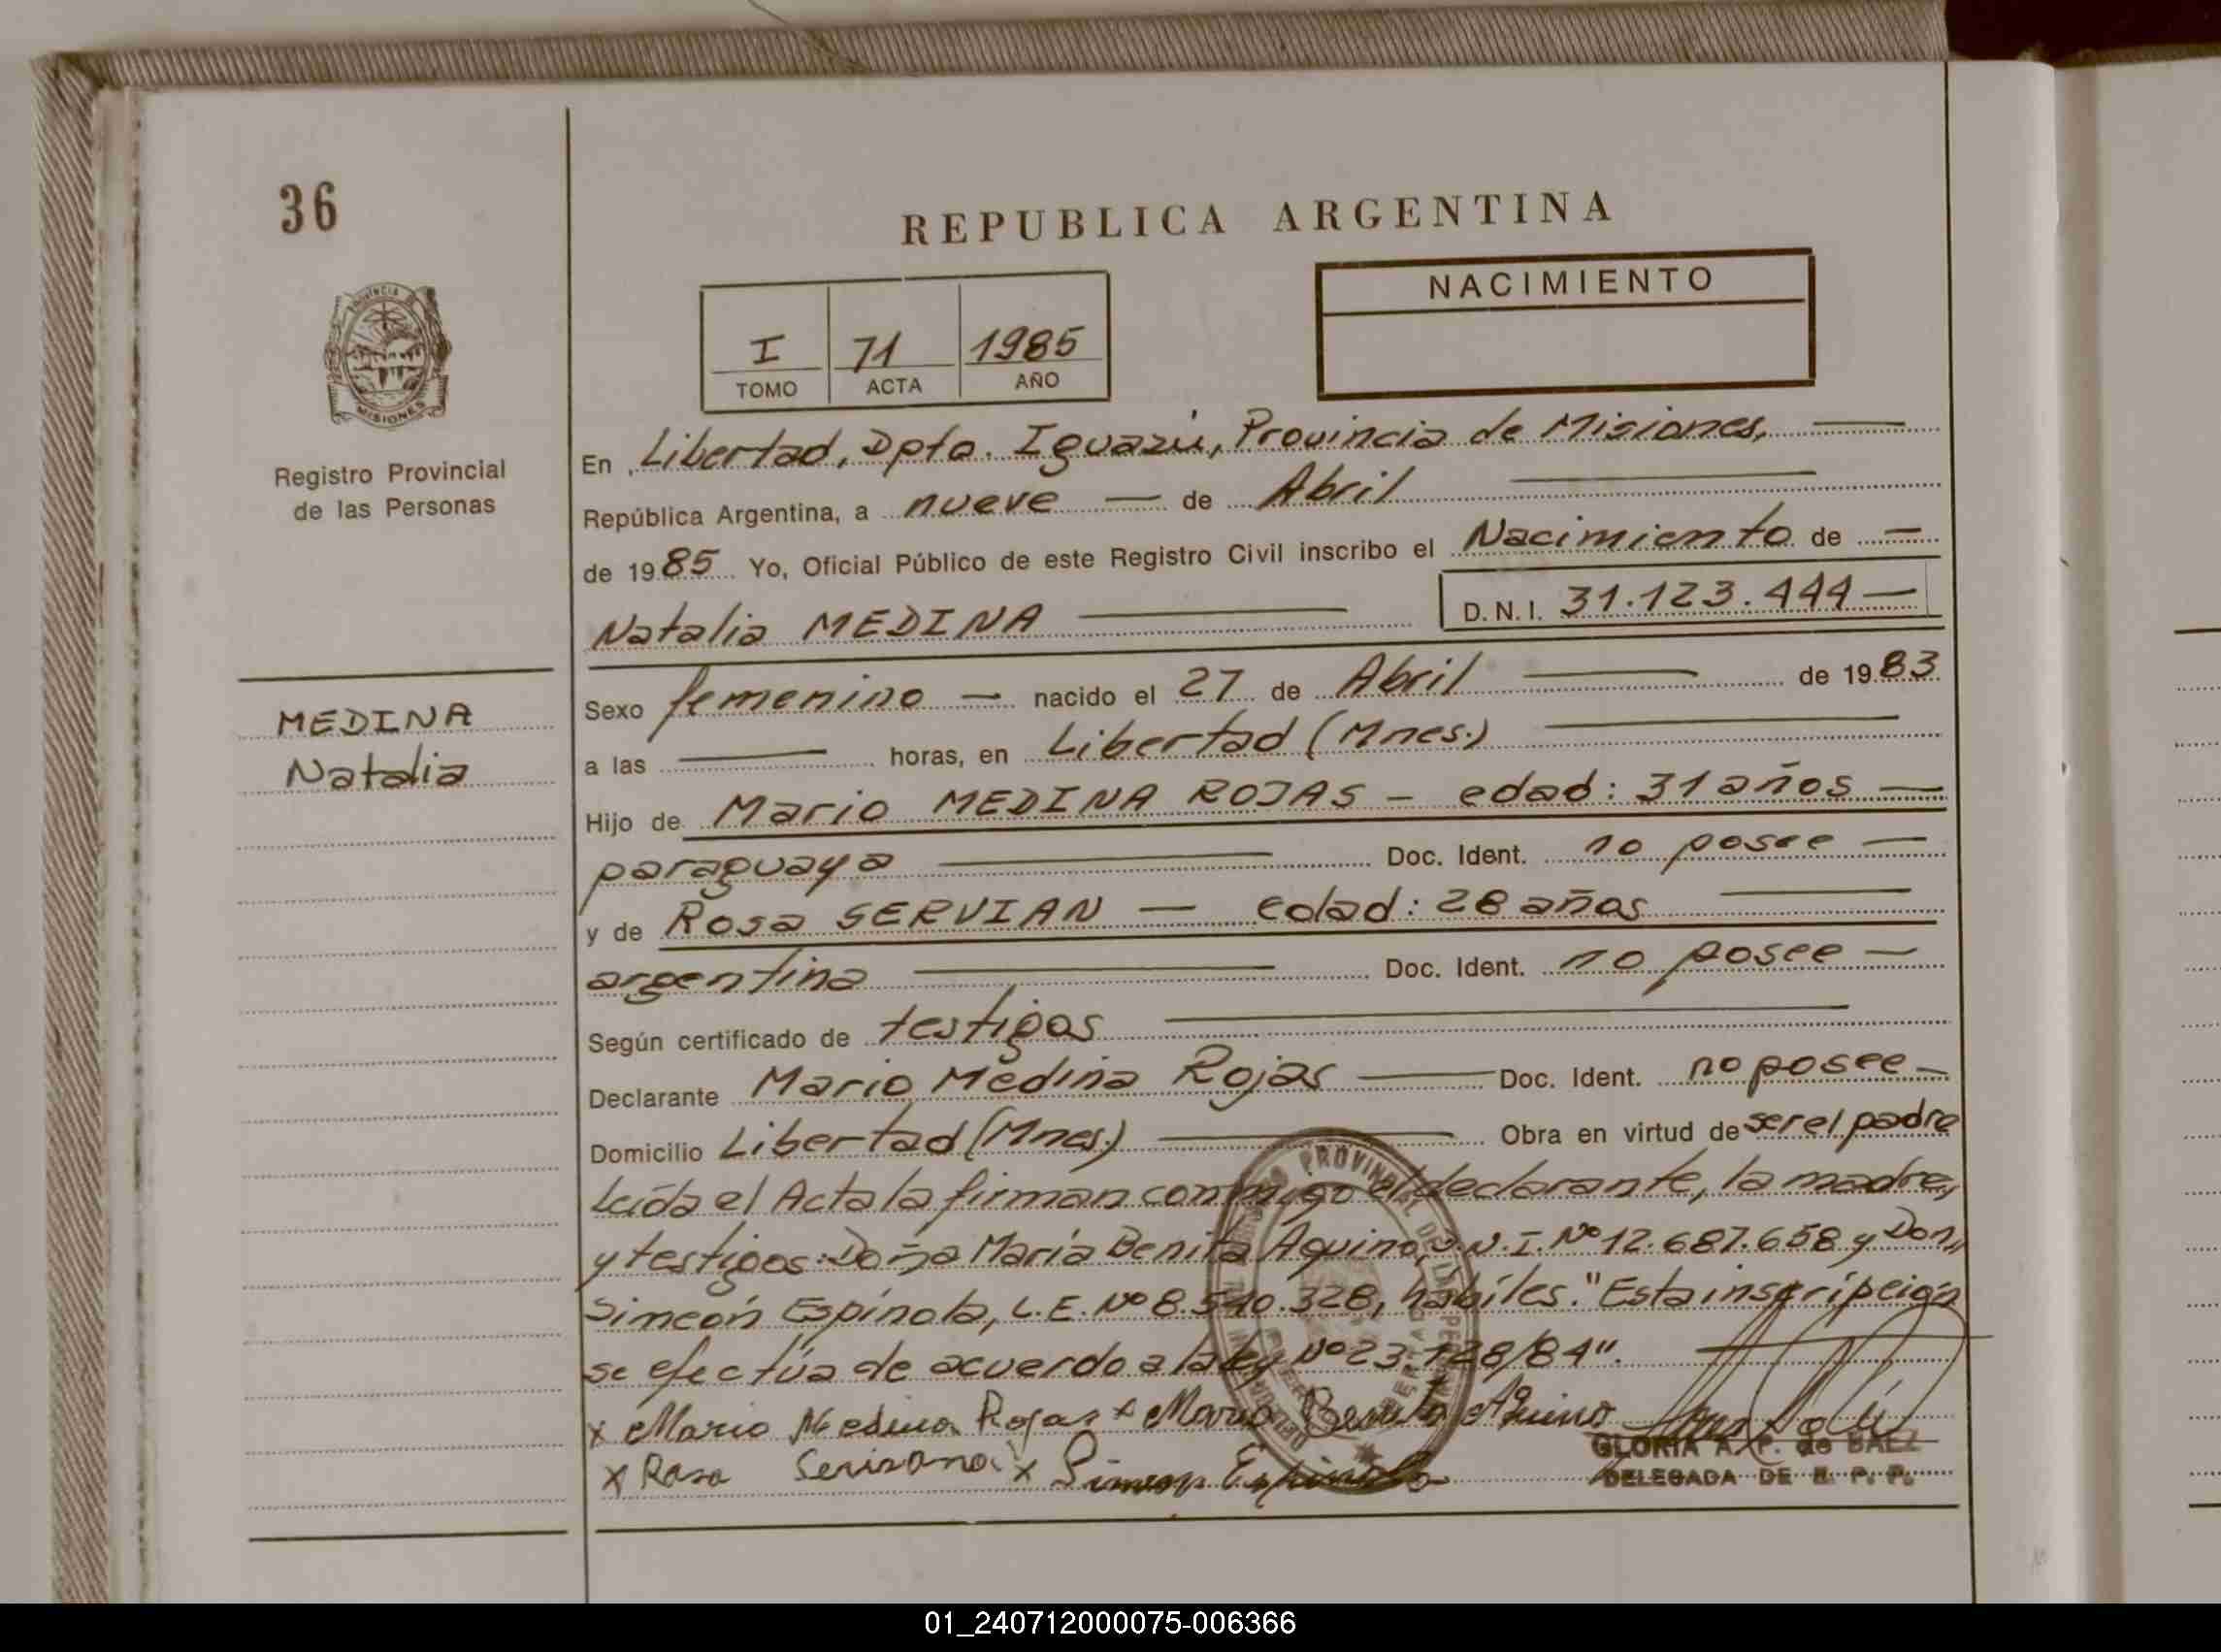 36
REPUBLICA ARGENTINA
PROVINCIA DE
MISIONES
Registro Provincial
de las Personas
I 71 1985
TOMO ACTA AÑO
NACIMIENTO
En Libertad, Dpto. Iguazú, Provincia de Misiones,
República Argentina, a nueve — de Abril
de 1985 Yo, Oficial Público de este Registro Civil inscribo el Nacimiento de —
Natalia MEDINA D.N.I. 31.123.444—
MEDINA
Natalia
Sexo femenino — nacido el 27 de Abril de 1983
a las — horas, en Libertad (Mnes.)
Hijo de Mario MEDINA ROJAS — edad: 31 años —
paraguaya — Doc. Ident. no posee —
y de Rosa SERVIAN — edad: 28 años
argentina — Doc. Ident. no posee —
Según certificado de testigos
Declarante Mario Medina Rojas — Doc. Ident. no posee —
Domicilio Libertad (Mnes.) — Obra en virtud de ser el padre
Leída el Acta la firman conmigo el declarante, la madre,
y testigos: Doña María Benita Aquino, D.N.I. Nº 12.687.658 y Don
Simeón Espínola, L.E. Nº 8.540.328, hábiles. "Esta inscripción
se efectúa de acuerdo a la ley Nº 23.128/84".
x Mario Medina Rojas x Maria Benita Aquino
x Rosa x Simeon Espinola
GLORIA A. P. de BAEZ
DELEGADA DE R. P. P.
01_240712000075-006366